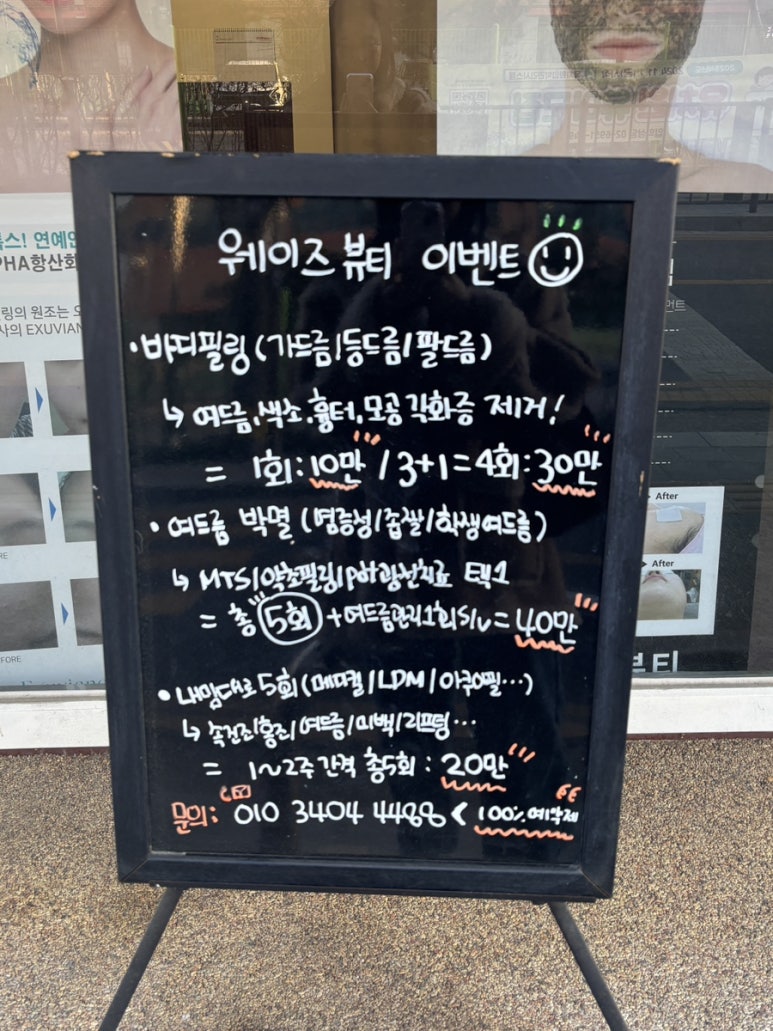 웨이즈 뷰티 이벤트
• 바디필링 (가드름/등드름/팔드름)
↳ 여드름, 색소, 흉터, 모공각화증 제거!
= 1회: 10만 / 3+1=4회: 30만
• 여드름 박멸 (염증성/좁쌀/학생여드름)
↳ MTS/약초필링/ 택1
= 총 5회 + 여드름관리1회S/v = 40만
• 내맘대로 5회 (메디컬/LDM/아쿠아필…)
↳ 속건조/홍조/여드름/미백/리프팅…
= 1~2주 간격 총5회 : 20만
문의: 010 3404 4488 < 100% 예약제
스! 연예인
PHA항산화
링의 원조는
사의 EXUVIAN
After
After
BEFORE
뷰티